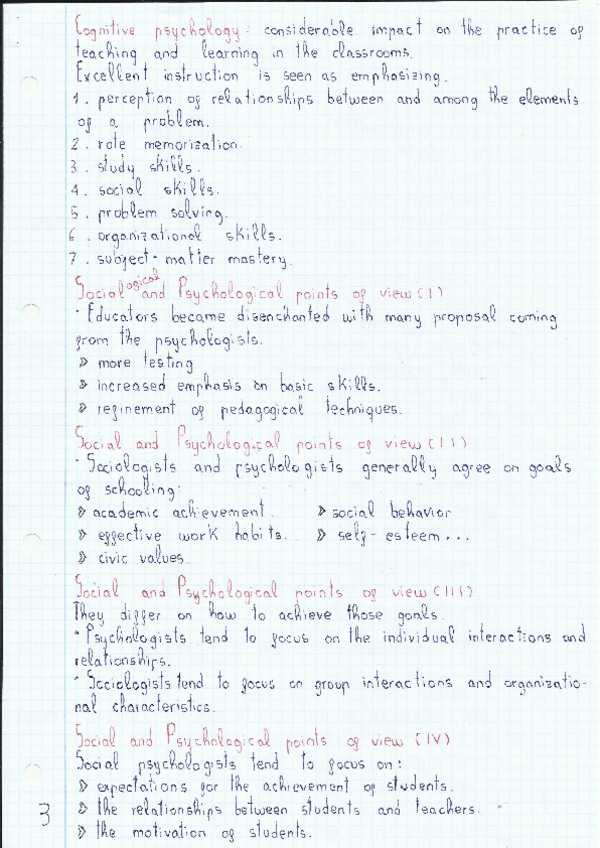 Cognitive psychology: considerable impact on the practice of
teaching and learning in the classrooms.
Excellent instruction is seen as emphasizing.
1. perception of relationships between and among the elements
of a problem.
2. rote memorization.
3. study skills.
4. social skills.
5. problem solving.
6. organizational skills.
7. subject-matter mastery.
Sociological and Psychological points of view (I)
· Educators became disenchanted with many proposal coming
from the psychologists.
» more testing
» increased emphasis on basic skills.
» refinement of pedagogical techniques.
Social and Psychological points of view (II)
· Sociologists and psychologists generally agree on goals
of schooling:
» academic achievement. » social behavior
» effective work habits. » self-esteem...
» civic values
Social and Psychological points of view (III)
They differ on how to achieve those goals.
· Psychologists tend to focus on the individual interactions and
relationships.
· Sociologists tend to focus on group interactions and organizatio-
nal characteristics.
Social and Psychological points of view (IV)
Social psychologists tend to focus on:
» expectations for the achievement of students.
» the relationships between students and teachers.
» the motivation of students.
3